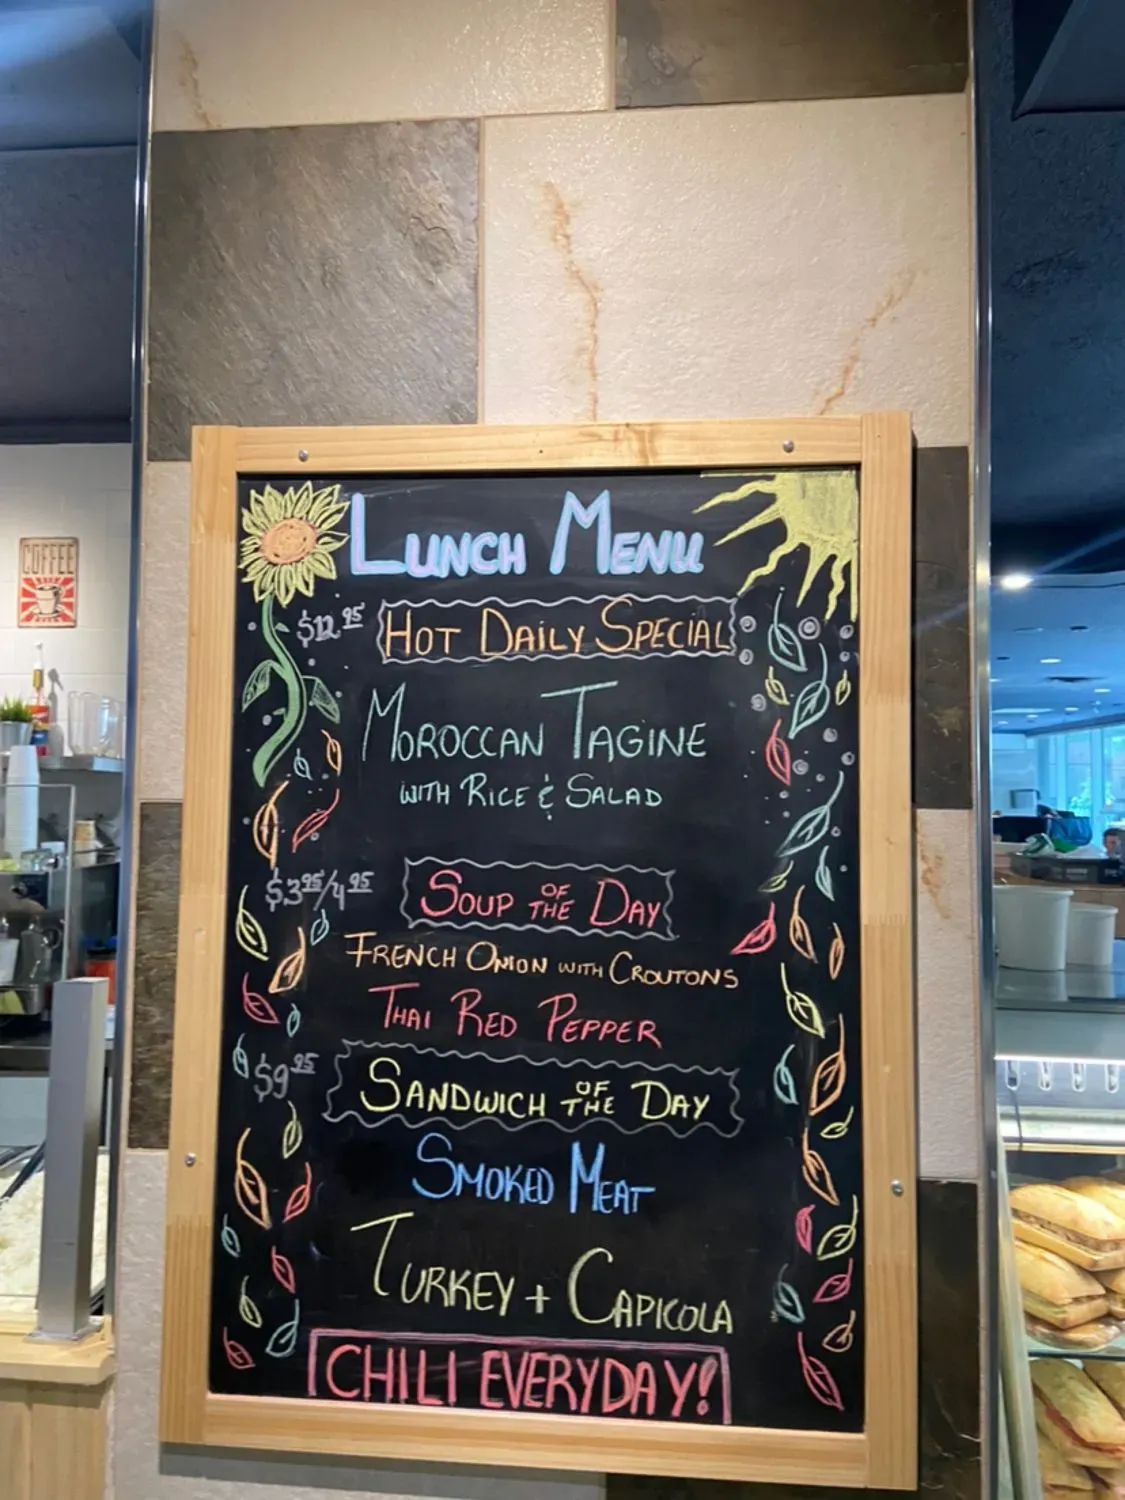 COFFEE
LUNCH MENU
$12.95 HOT DAILY SPECIAL
MOROCCAN TAGINE
WITH RICE & SALAD
$3.95/4.95 SOUP OF THE DAY
FRENCH ONION WITH CROUTONS
THAI RED PEPPER
$9.95 SANDWICH OF THE DAY
SMOKED MEAT
TURKEY + CAPICOLA
CHILI EVERYDAY!